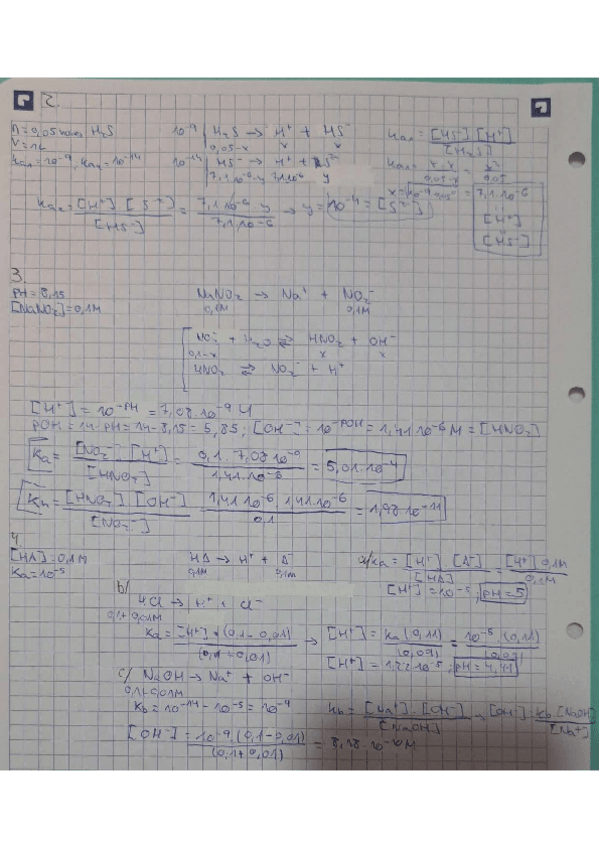 2.
n = 0,05 moles H₂S
V = 1L
Ka₁ = 10⁻⁹, Ka₂ = 10⁻¹⁴
10⁻⁹ | H₂S → H⁺ + HS⁻
0,05-x x x
10⁻¹⁴ | HS⁻ → H⁺ + S²⁻
7,1·10⁻⁶-y 7,1·10⁻⁶ y
Ka₁ = [HS⁻] [H⁺] / [H₂S]
Ka₁ = x·x / 0,05-x = x² / 0,05
= 7,1·10⁻⁶
[H⁺]
[HS⁻]
Ka₂ = [H⁺] [S²⁻] / [HS⁻] = 7,1·10⁻⁶·y / 7,1·10⁻⁶ → y = 10⁻¹⁴ = [S²⁻]
3.
pH = 8,15
[NaNO₂] = 0,1M
NaNO₂ → Na⁺ + NO₂⁻
0,1M 0,1M
NO₂⁻ + H₂O ⇌ HNO₂ + OH⁻
0,1-x x x
HNO₂ ⇌ NO₂⁻ + H⁺
[H⁺] = 10⁻ᵖᴴ = 7,08·10⁻⁹ M
pOH = 14-pH = 14-8,15 = 5,85; [OH⁻] = 10⁻ᵖᴼᴴ = 1,41·10⁻⁶ M = [HNO₂]
Ka = [NO₂⁻]·[H⁺] / [HNO₂] = 0,1·7,08·10⁻⁹ / 1,41·10⁻⁶ = 5,01·10⁻⁴
Kh = [HNO₂] [OH⁻] / [NO₂⁻] = 1,41·10⁻⁶·1,41·10⁻⁶ / 0,1 = 1,98·10⁻¹¹
4.
[HA] = 0,1M
Ka = 10⁻⁵
HA → H⁺ + A⁻
0,1M 0,1M
a/ Ka = [H⁺] [A⁻] / [HA] = [H⁺] 0,1M / 0,1M
[H⁺] = 10⁻⁵; pH = 5
b/
HCl → H⁺ + Cl⁻
0,1+0,01M
Ka = [H⁺]·(0,1-0,01) / (0,1-0,01) → [H⁺] = Ka (0,11) / (0,09) = 10⁻⁵·(0,11) / (0,09)
[H⁺] = 1,22·10⁻⁵; pH = 4,91
c/ NaOH → Na⁺ + OH⁻
0,1-0,01M
Kb = 10⁻¹⁴ - 10⁻⁵ = 10⁻⁹
Kb = [Na⁺]·[OH⁻] / [NaOH] → [OH⁻] = Kb [NaOH] / [Na⁺]
[OH⁻] = 10⁻⁹·(0,1-0,01) / (0,1+0,01) = 8,18·10⁻¹⁰M